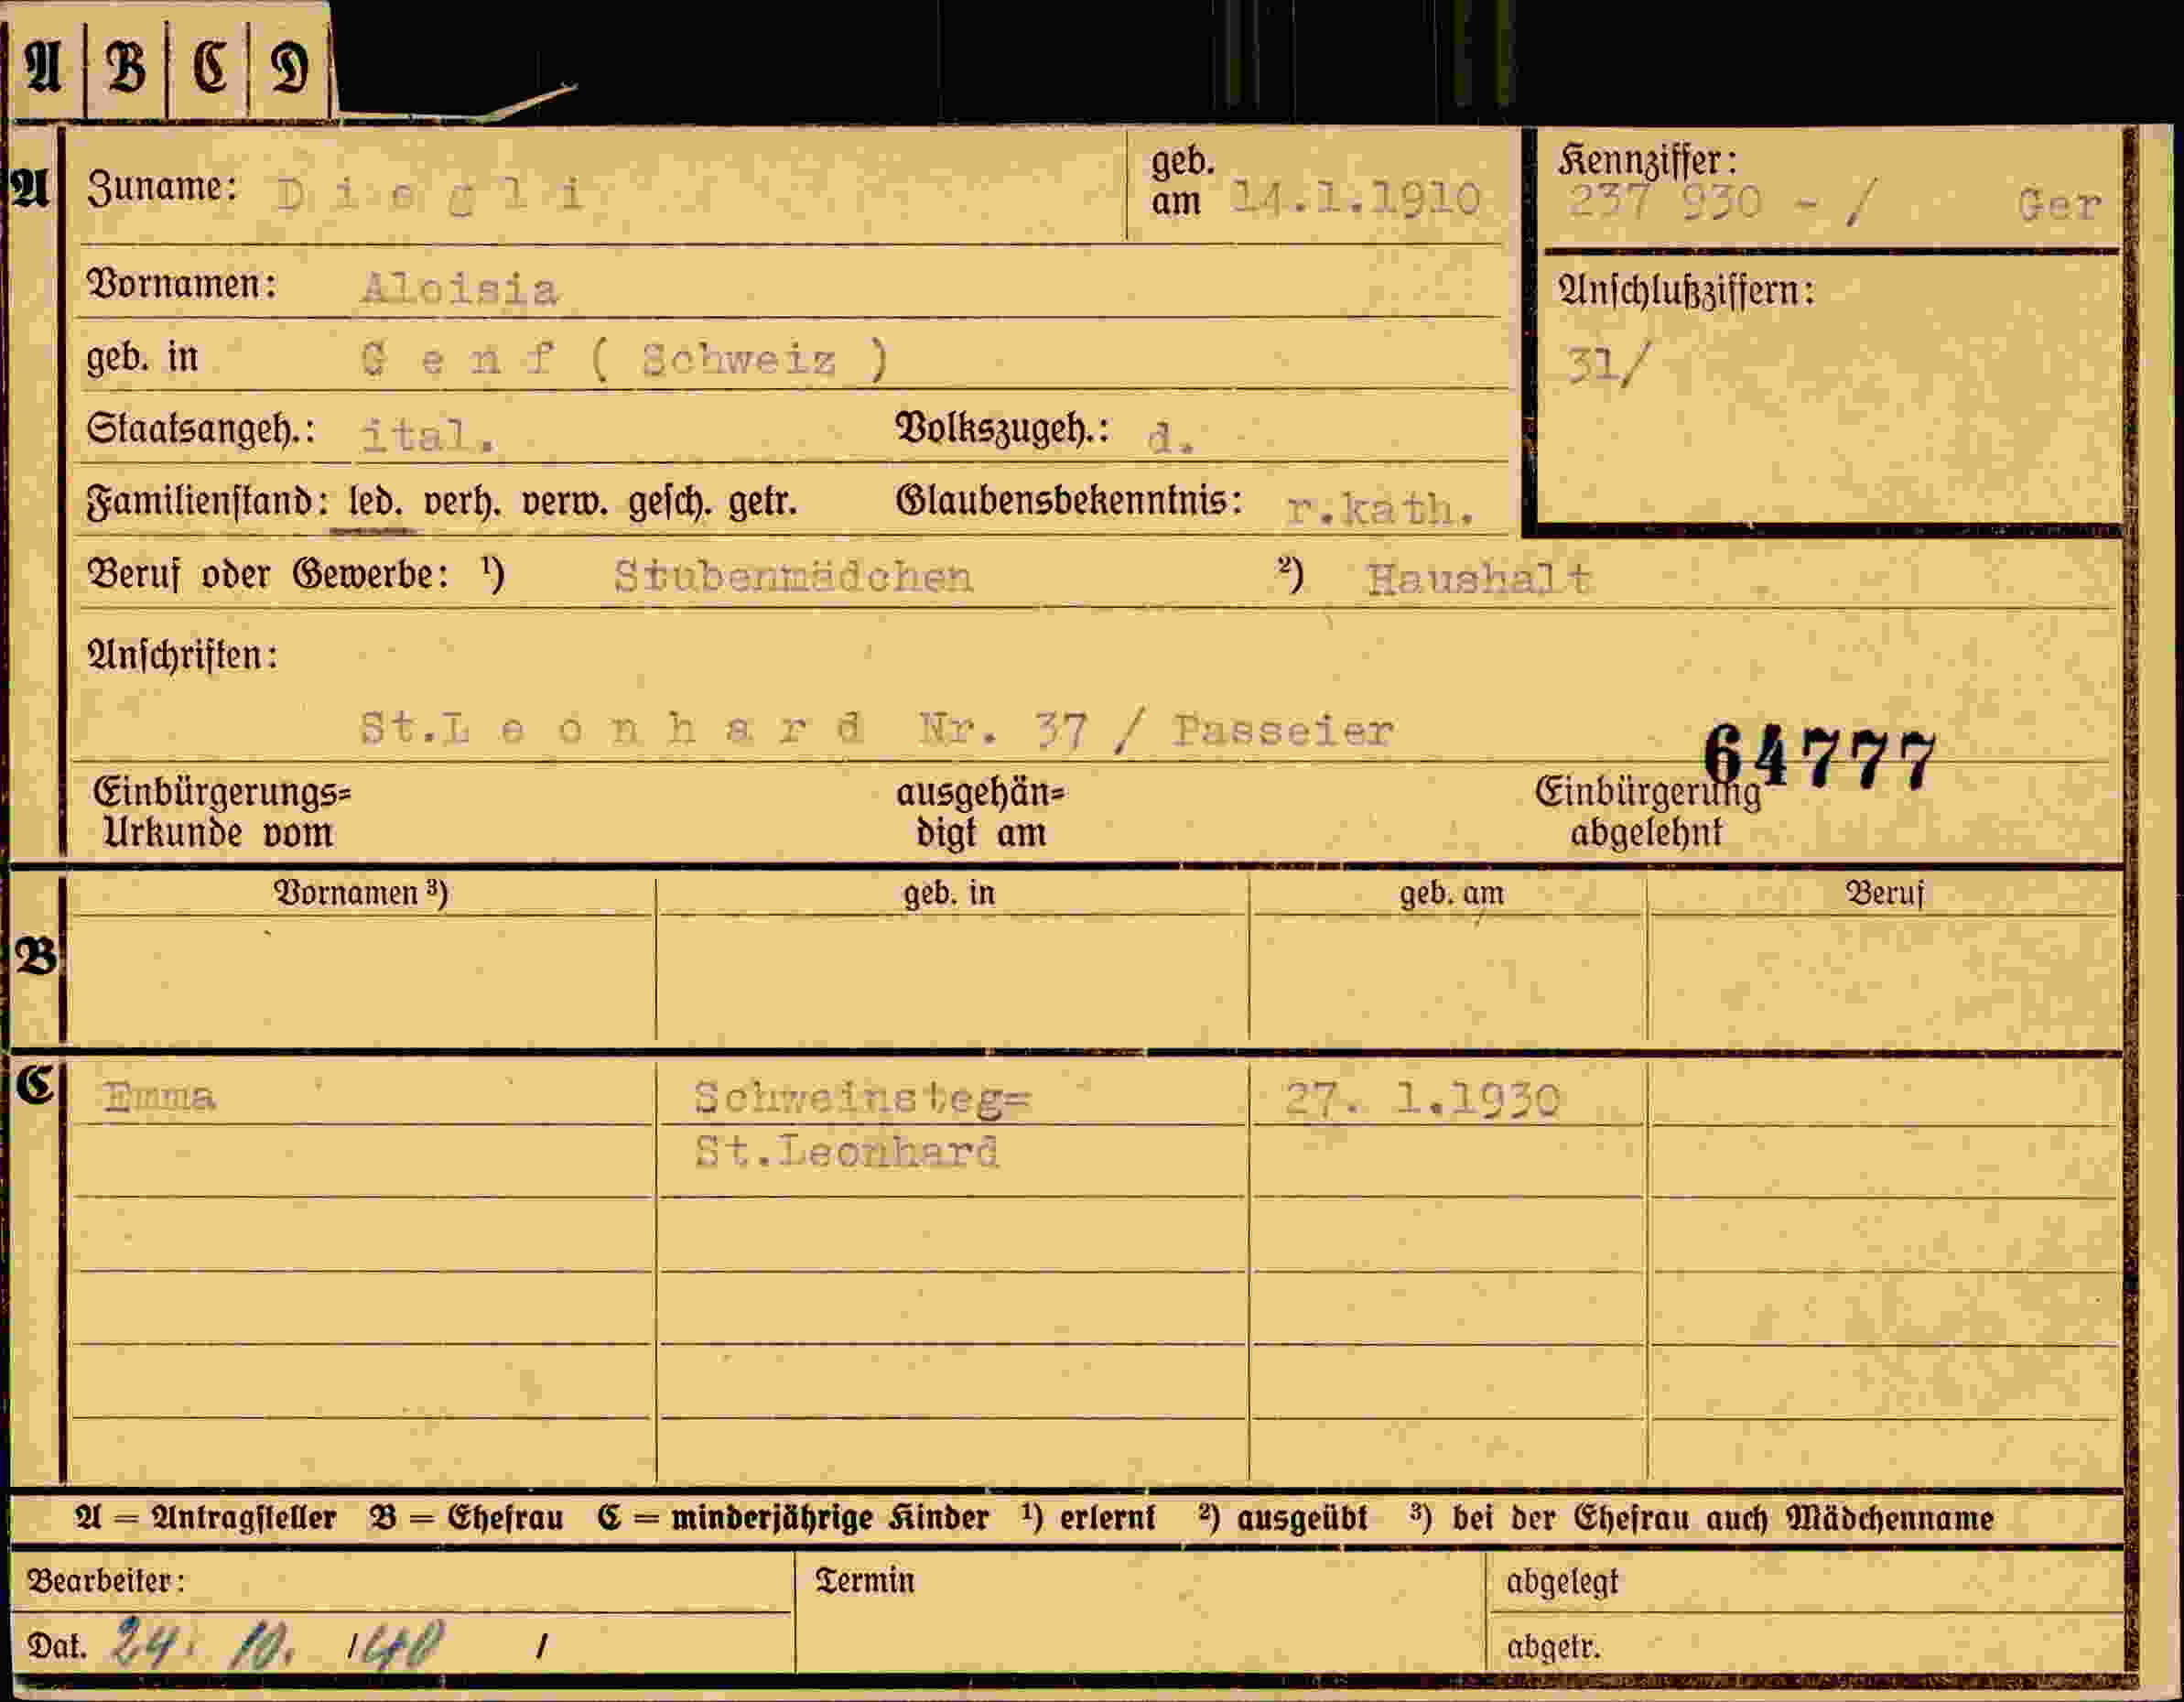 A B C D
A Zuname: D i e g l i geb. am 14.1.1910 Kennziffer: 237 930 - / Ger
Vornamen: Aloisia Anschlußziffern:
geb. in G e n f ( Schweiz ) 31/
Staatsangeh.: ital. Volkszugeh.: d.
Familienstand: led. verh. verw. gesch. getr. Glaubensbekenntnis: r.kath.
Beruf oder Gewerbe: ¹) Stubenmädchen ²) Haushalt
Anschriften:
St.L e o n h a r d Nr. 37 / Passeier 64777
Einbürgerungs= ausgehän= Einbürgerung
Urkunde vom digt am abgelehnt
Vornamen ³) geb. in geb. am Beruf
B
C Emma Schweinsteg= 27. 1.1930
St.Leonhard
A = Antragsteller B = Ehefrau C = minderjährige Kinder ¹) erlernt ²) ausgeübt ³) bei der Ehefrau auch Mädchenname
Bearbeiter: Termin abgelegt
Dat. 24. 10. / 40 / abgetr.